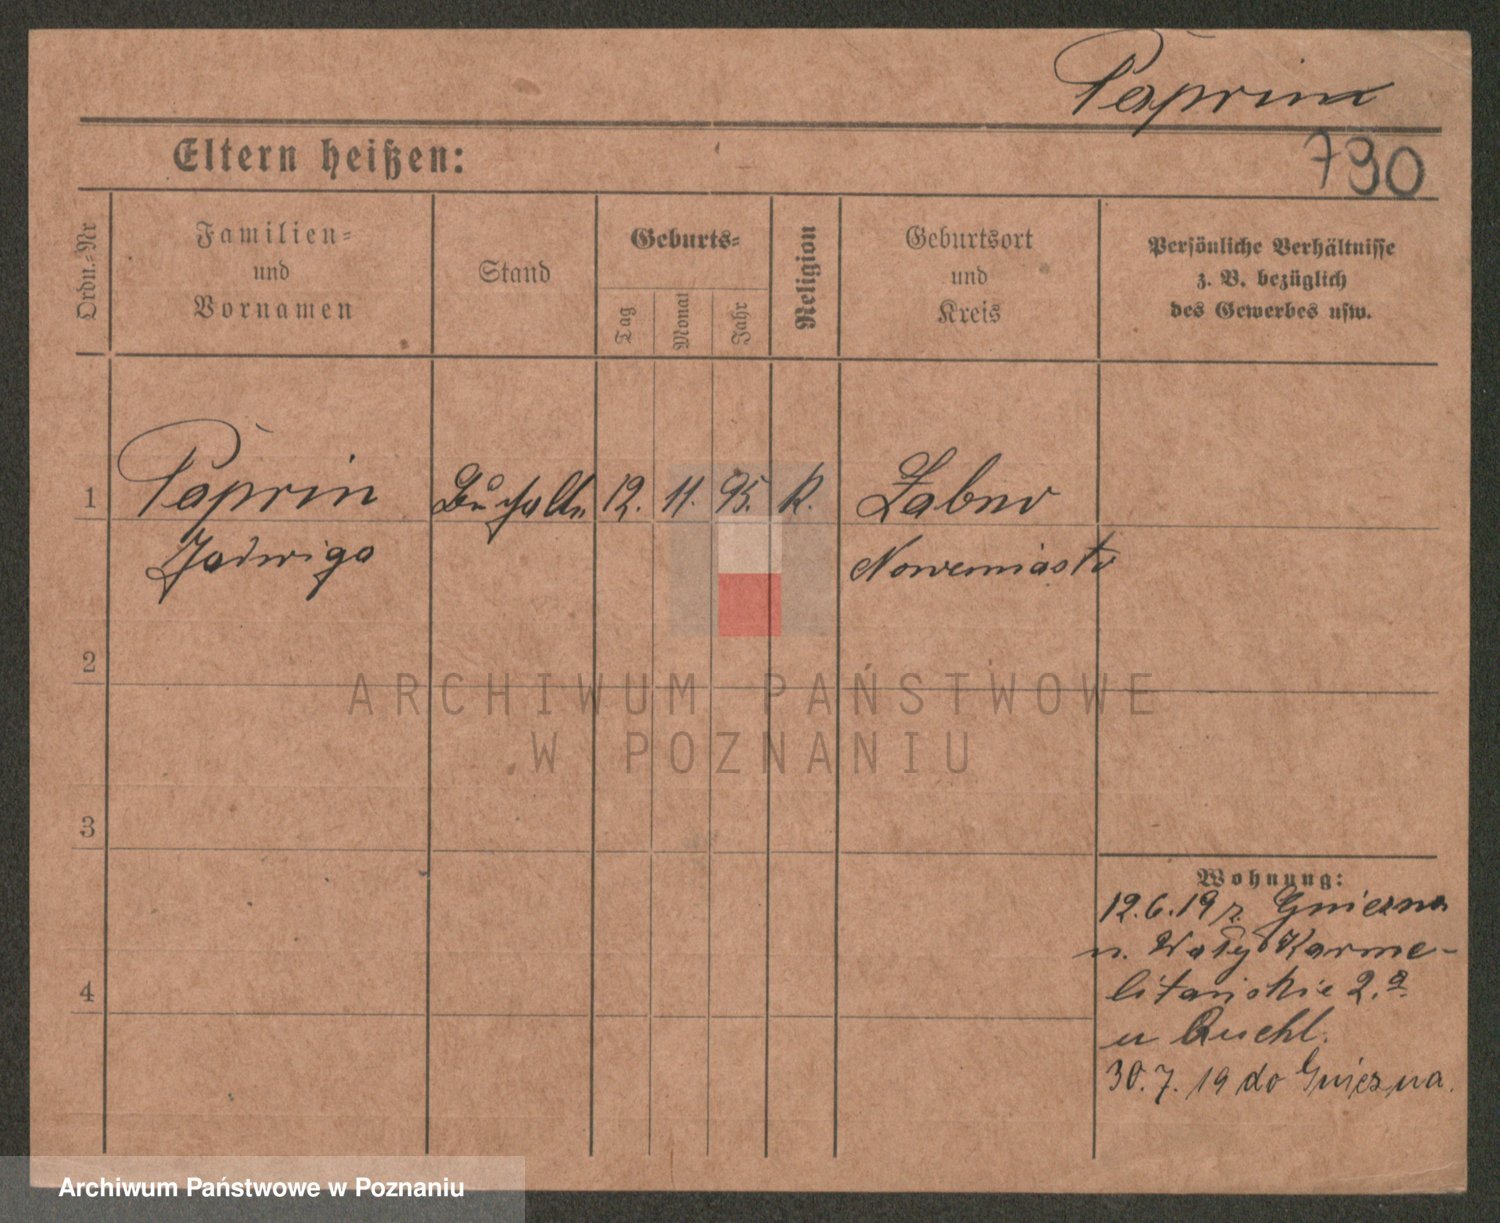 Paprin
Eltern heißen:
790
Ordn.-Nr
Familien-
und
Vornamen
Stand
Geburts-
Tag
Monat
Jahr
Religion
Geburtsort
und
Kreis
Persönliche Verhältnisse
z. B. bezüglich
des Gewerbes usw.
1 Paprin 12. 11. 95. K. Żabno
Jadwiga Nowemiasto
2
ARCHIWUM PAŃSTWOWE
W POZNANIU
3
Wohnung:
12.6.19 z Gniezna
n. Wały Karme-
litańskie 2.a
u Buchl.
4
30.7.19 do Gniezna.
Archiwum Państwowe w Poznaniu